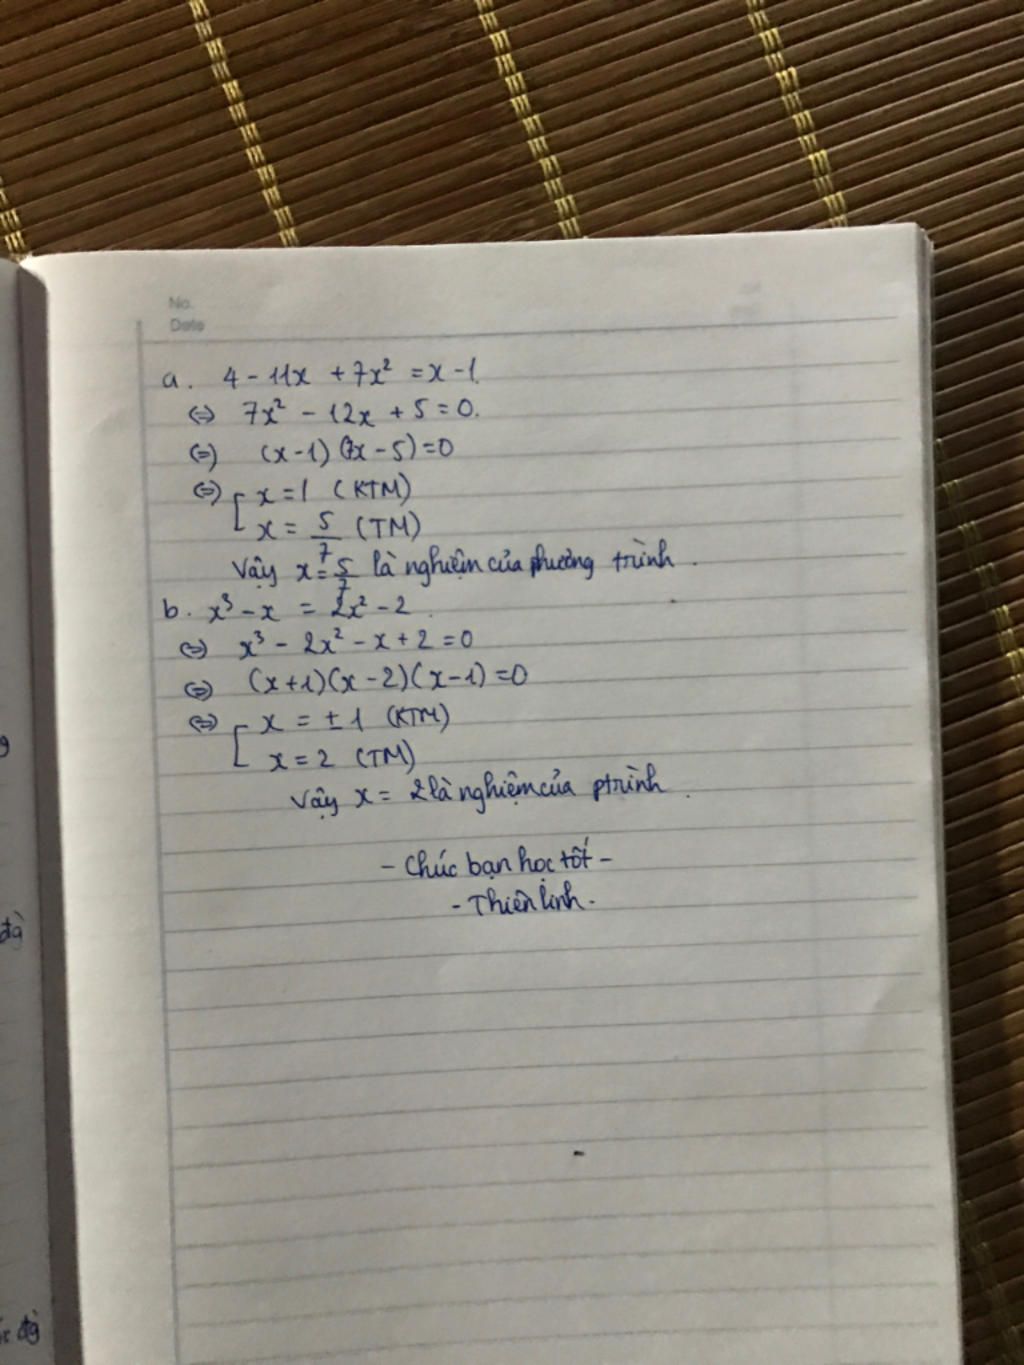 No.
Date
a. 4 - 11x + 7x² = x - 1.
⇔ 7x² - 12x + 5 = 0.
⇔ (x-1)(7x-5)=0
⇔ [ x = 1 (KTM)
x = 5/7 (TM)
Vậy x = 5/7 là nghiệm của phương trình.
b. x³ - x = 2x² - 2.
⇔ x³ - 2x² - x + 2 = 0
⇔ (x+1)(x-2)(x-1) = 0
⇔ [ x = ±1 (KTM)
x = 2 (TM)
Vậy x = 2 là nghiệm của ptrình.
- Chúc bạn học tốt -
- Thiên Linh -
đg